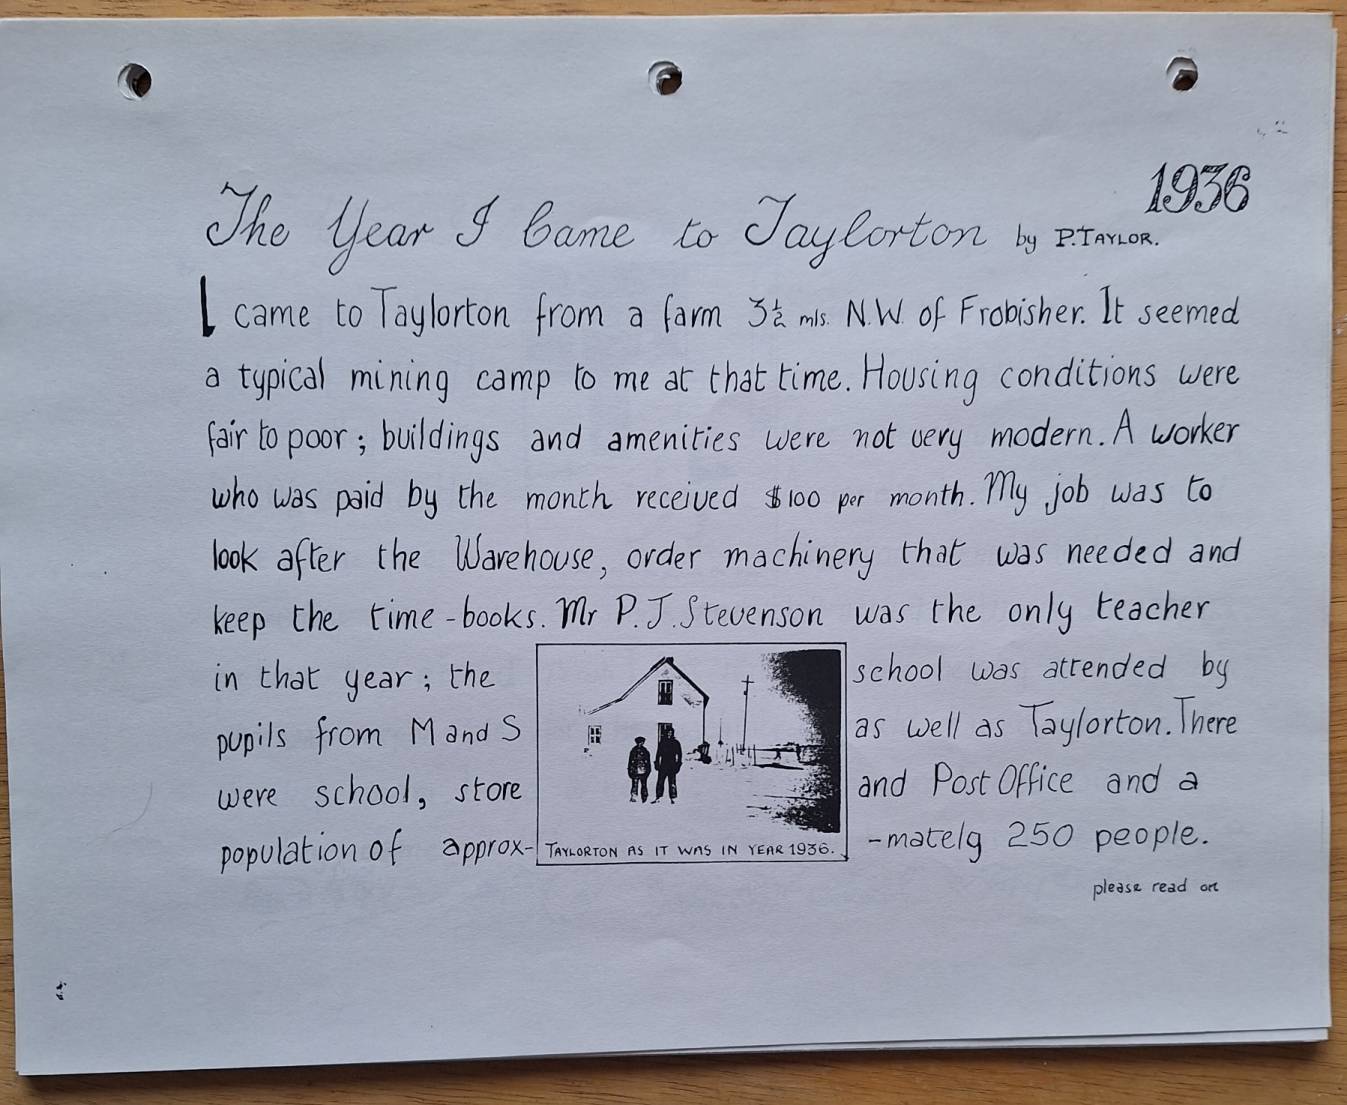 1936
The Year I Came to Taylorton by P. TAYLOR.
I came to Taylorton from a farm 3½ mls. N.W. of Frobisher. It seemed
a typical mining camp to me at that time. Housing conditions were
fair to poor; buildings and amenities were not very modern. A worker
who was paid by the month received $100 per month. My job was to
look after the Warehouse, order machinery that was needed and
keep the time-books. Mr P.J. Stevenson was the only teacher
in that year; the school was attended by
pupils from M and S as well as Taylorton. There
were school, store and Post Office and a
population of approx- -mately 250 people.
TAYLORTON AS IT WAS IN YEAR 1936.
please read on